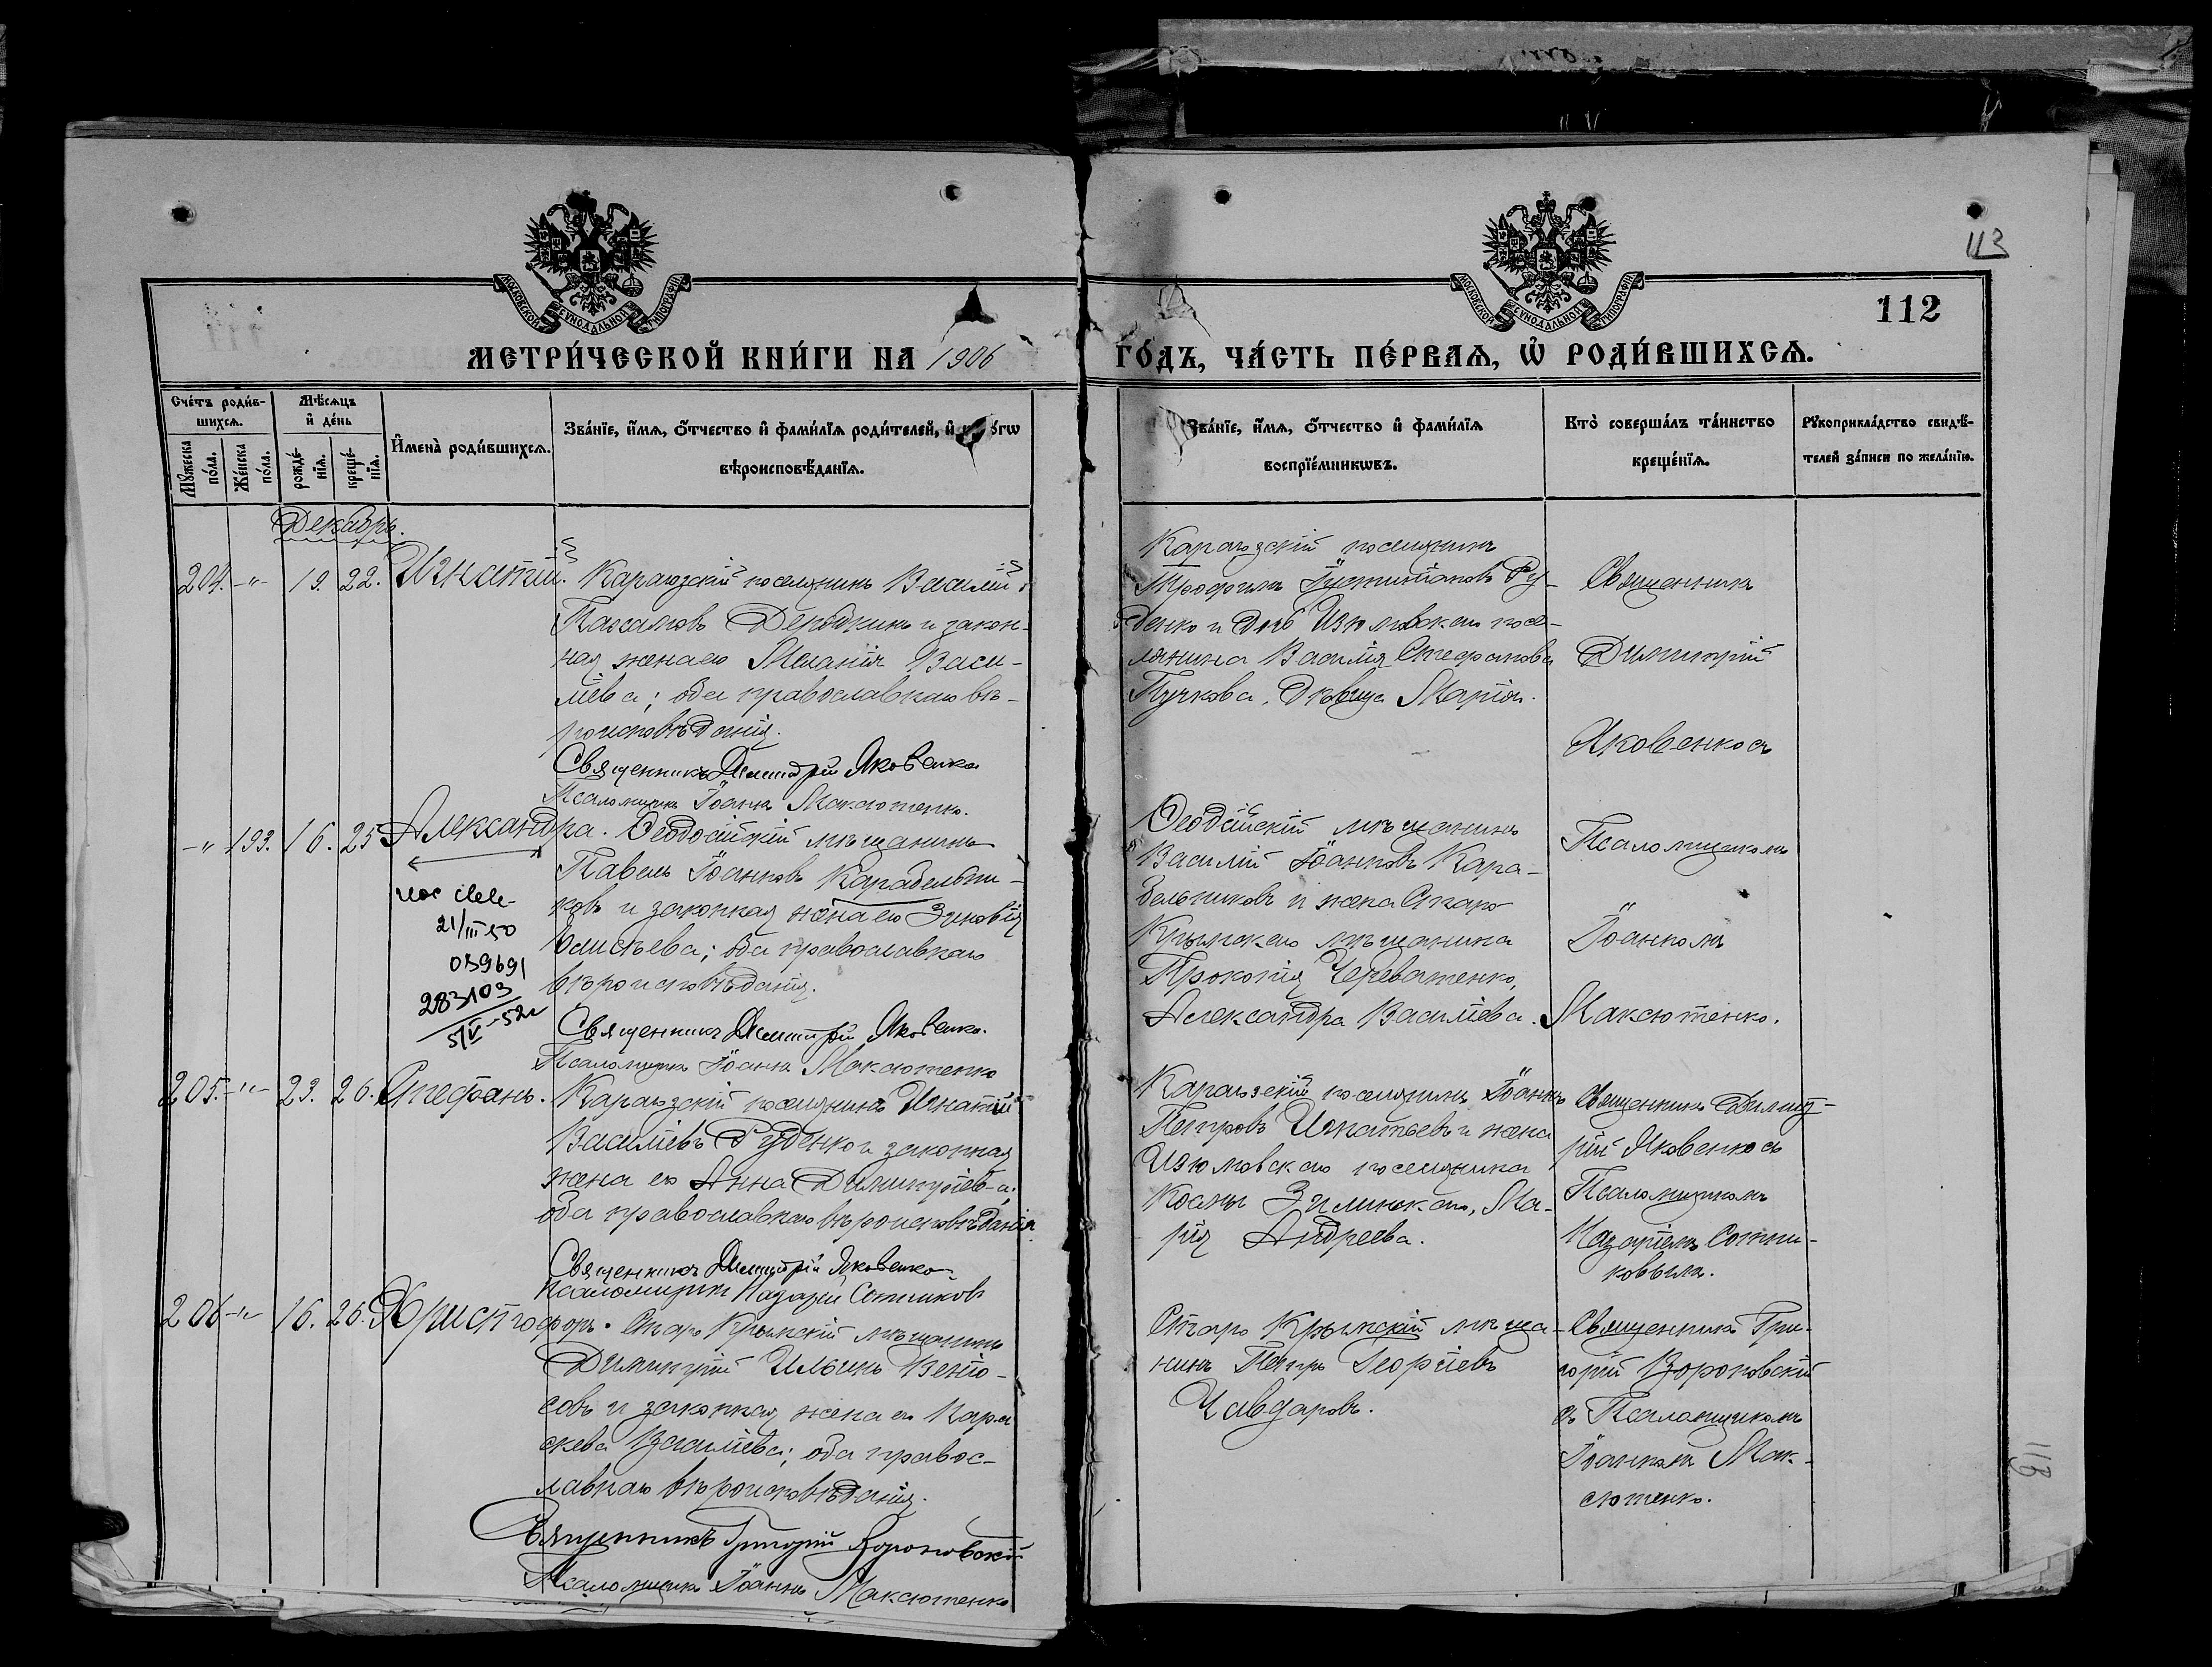 113
112
МОСКОВСКОЙ СѴНОДАЛЬНОЙ ТИПОГРАФІИ
МОСКОВСКОЙ СѴНОДАЛЬНОЙ ТИПОГРАФІИ
МЕТРИ́ЧЕСКОЙ КНИ́ГИ НА 1906
ГО́ДЪ, ЧА́СТЬ ПЕ́РВАѦ, Ѡ҆ РОДИ́ВШИХСѦ.
Сче́тъ роди́в-
шихсѧ.
Мꙋ́жеска
по́ла.
Же́нска
по́ла.
Мѣ́сѧцъ
и҆ де́нь
рожде́-
нїѧ.
креще́-
нїѧ.
И҆мена̀ роди́вшихсѧ.
Зва́нїе, и҆́мѧ, ѻ҆́тчество и҆ фами́лїѧ роди́телей, и҆
вѣроисповѣ́данїѧ.
Зва́нїе, и҆́мѧ, ѻ҆́тчество и҆ фами́лїѧ
воспрїе́мникѡвъ.
Кто̀ соверша́лъ та́инство
креще́нїѧ.
Рꙋкоприкла́дство свидѣ́-
телей за́писи по жела́нїю.
Декабрь.
204. -"- 19. 22. Игнатій. Караюзскій поселянинъ Василій
и закон-
ная жена его Меланія Васи-
ліева; оба православнаго вѣ-
роисповѣданія.
Священникъ Димитрій Яковенко
Псаломщикъ Іоаннъ Максютенко.
Караюзскій поселянинъ
Трофимъ Ру-
денко и дочь Изюмовскаго посе-
лянина Василія Стефанова
Пучкова, дѣвица Марія.
Священникъ
Димитрій
Яковенко съ
Псаломщикомъ
Іоанномъ
Максютенко.
-" 193. 16. 25 Александра. Ѳеодосійскій мѣщанинъ
Павелъ Іоанновъ Карабельни-
ковъ и законная жена его Зиновія
оба православнаго
вѣроисповѣданія.
Священникъ Димитрій Яковенко.
Псаломщикъ Іоаннъ Максютенко
21/III 50
039691
283103
5/V-52г
Ѳеодосійскій мѣщанинъ
Василій Іоанновъ Кара-
бельниковъ и жена Старо
Крымскаго мѣщанина
Прокопія Череватенко,
Александра Василіева.
205. -"- 23. 26. Стефанъ. Караюзскій поселянинъ Игнатій
Василіевъ Руденко и законная
жена его Анна Димитріева;
оба православнаго вѣроисповѣданія.
Священникъ Димитрій Яковенко
Псаломщикъ Назарій Сотниковъ
Караюзскій поселянинъ Іоаннъ
Петровъ Игнатьевъ и жена
Изюмовскаго поселянина
Космы Зилинскаго, Ма-
рія Андреева.
Священникъ Димит-
рій Яковенко съ
Псаломщикомъ
Назаріемъ Сотни-
ковымъ.
206 -"- 16. 26. Христофоръ. Старо Крымскій мѣщанинъ
Димитрій Ильинъ Веніо-
совъ и законная жена его Пара
скева Василіева; оба правос-
лавнаго вѣроисповѣданія.
Священникъ Григорій Вороновскій
Псаломщикъ Іоаннъ Максютенко
Старо Крымскій мѣща-
нинъ Петръ Георгіевъ
Чавдаровъ.
Священникъ Гри-
горій Вороновскій
съ Псаломщикомъ
Іоанномъ Мак-
сютенко.
113